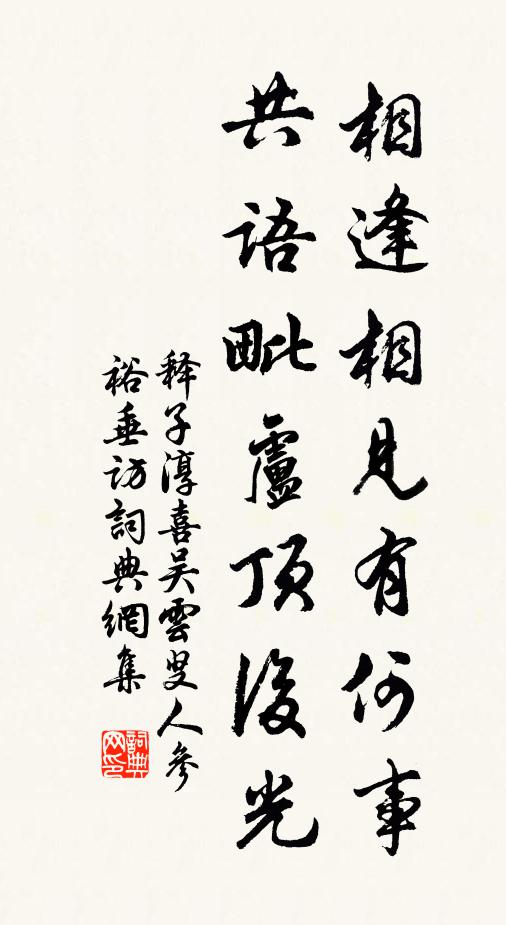 相逢相見有何事
共語毗盧頂後光
释子淳喜吴雲叟人參
裕垂访詞典網集
詞典网印